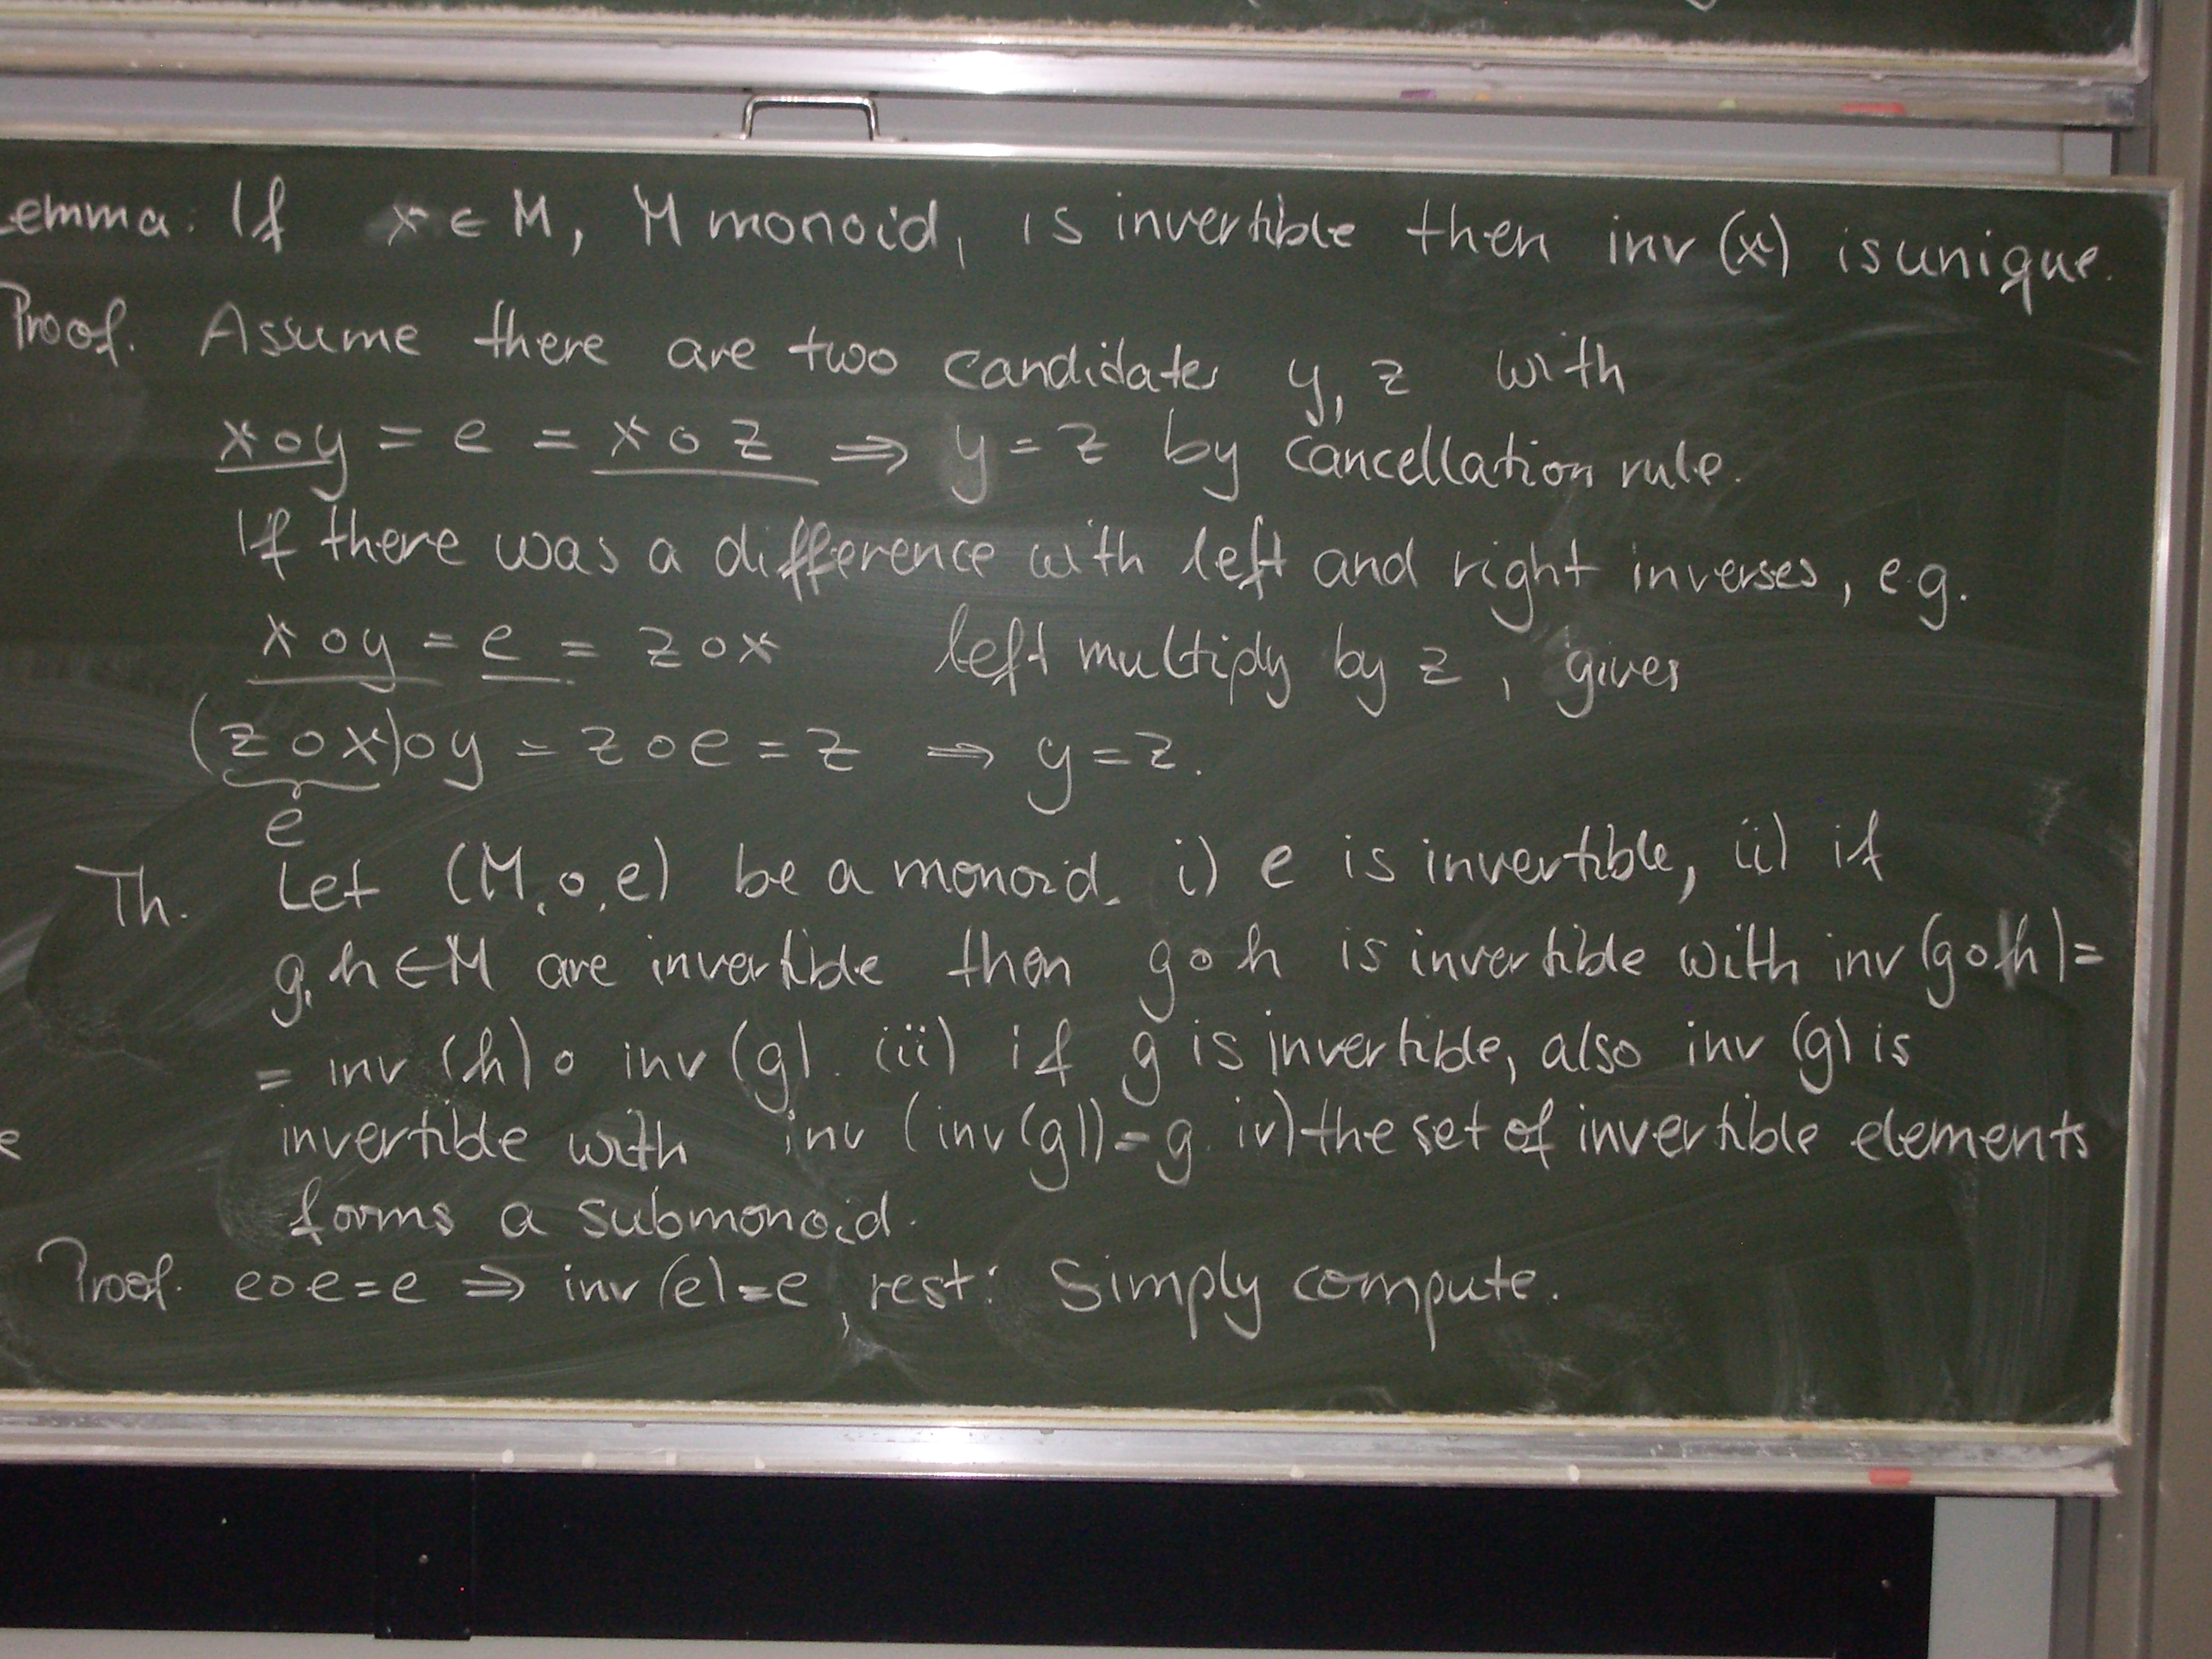 Lemma: If x ∈ M, M monoid, is invertible then inv (x) is unique.
Proof. Assume there are two candidates y, z with
x∘y = e = x∘z ⇒ y = z by cancellation rule.
If there was a difference with left and right inverses, e.g.
x∘y = e = z∘x left multiply by z, gives
(z∘x)∘y = z∘e = z ⇒ y = z.
e
Th. Let (M,∘,e) be a monoid. i) e is invertible, ii) if
g,h ∈ M are invertible then g∘h is invertible with inv (g∘h) =
= inv (h) ∘ inv (g). iii) if g is invertible, also inv (g) is
invertible with inv (inv(g)) = g. iv) the set of invertible elements
forms a submonoid.
Proof. e∘e = e ⇒ inv (e) = e, rest: Simply compute.